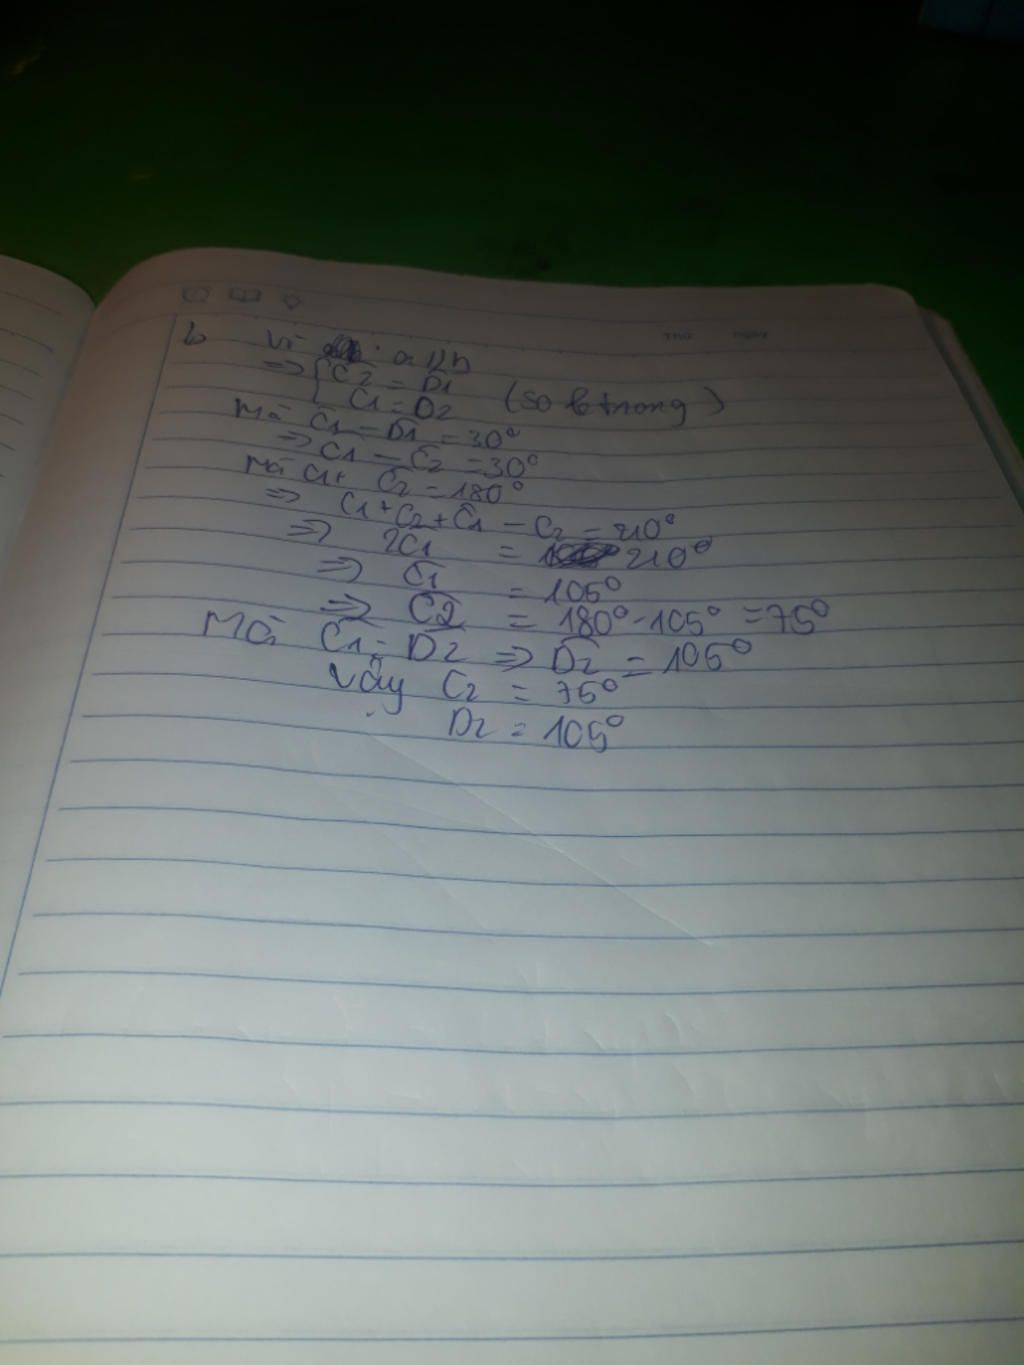 b Vì a // b
⇒ { C2 = D1
C1 = D2 (so le trong)
Mà C1 - D1 = 30°
⇒ C1 - C2 = 30°
Mà C1 + C2 = 180°
⇒ C1 + C2 + C1 - C2 = 210°
⇒ 2C1 = 210°
⇒ C1 = 105°
⇒ C2 = 180° - 105° = 75°
Mà C1 = D2 ⇒ D2 = 105°
Vậy C2 = 75°
D2 = 105°